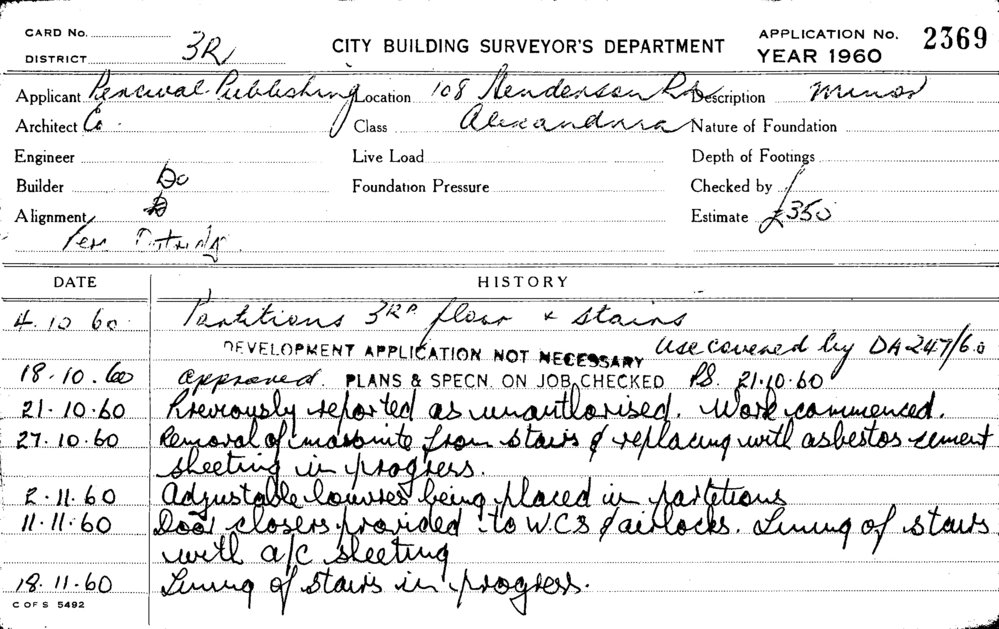 CARD No.
DISTRICT 3R
CITY BUILDING SURVEYOR'S DEPARTMENT
APPLICATION No. 2369
YEAR 1960
Applicant Percival Publishing Location 108 Henderson Rd Description minor
Architect Co. Class Alexandria Nature of Foundation
Engineer Live Load Depth of Footings
Builder Do Foundation Pressure Checked by
Alignment Estimate £350
Per
DATE HISTORY
4.10.60 Partitions 3RD floor & stairs
DEVELOPMENT APPLICATION NOT NECESSARY Use covered by DA 247/60
18.10.60 approved. PLANS & SPECN. ON JOB CHECKED P.S. 21.10.60
21.10.60 Previously reported as unauthorised. Work commenced.
27.10.60 Removal of masonite from stairs & replacing with asbestos cement
sheeting in progress.
2.11.60 Adjustable louvres being placed in partitions
11.11.60 Door closers provided to W.C.S & airlocks. Lining of stairs
with a/c sheeting
18.11.60 Lining of stairs in progress.
C OF S 5492